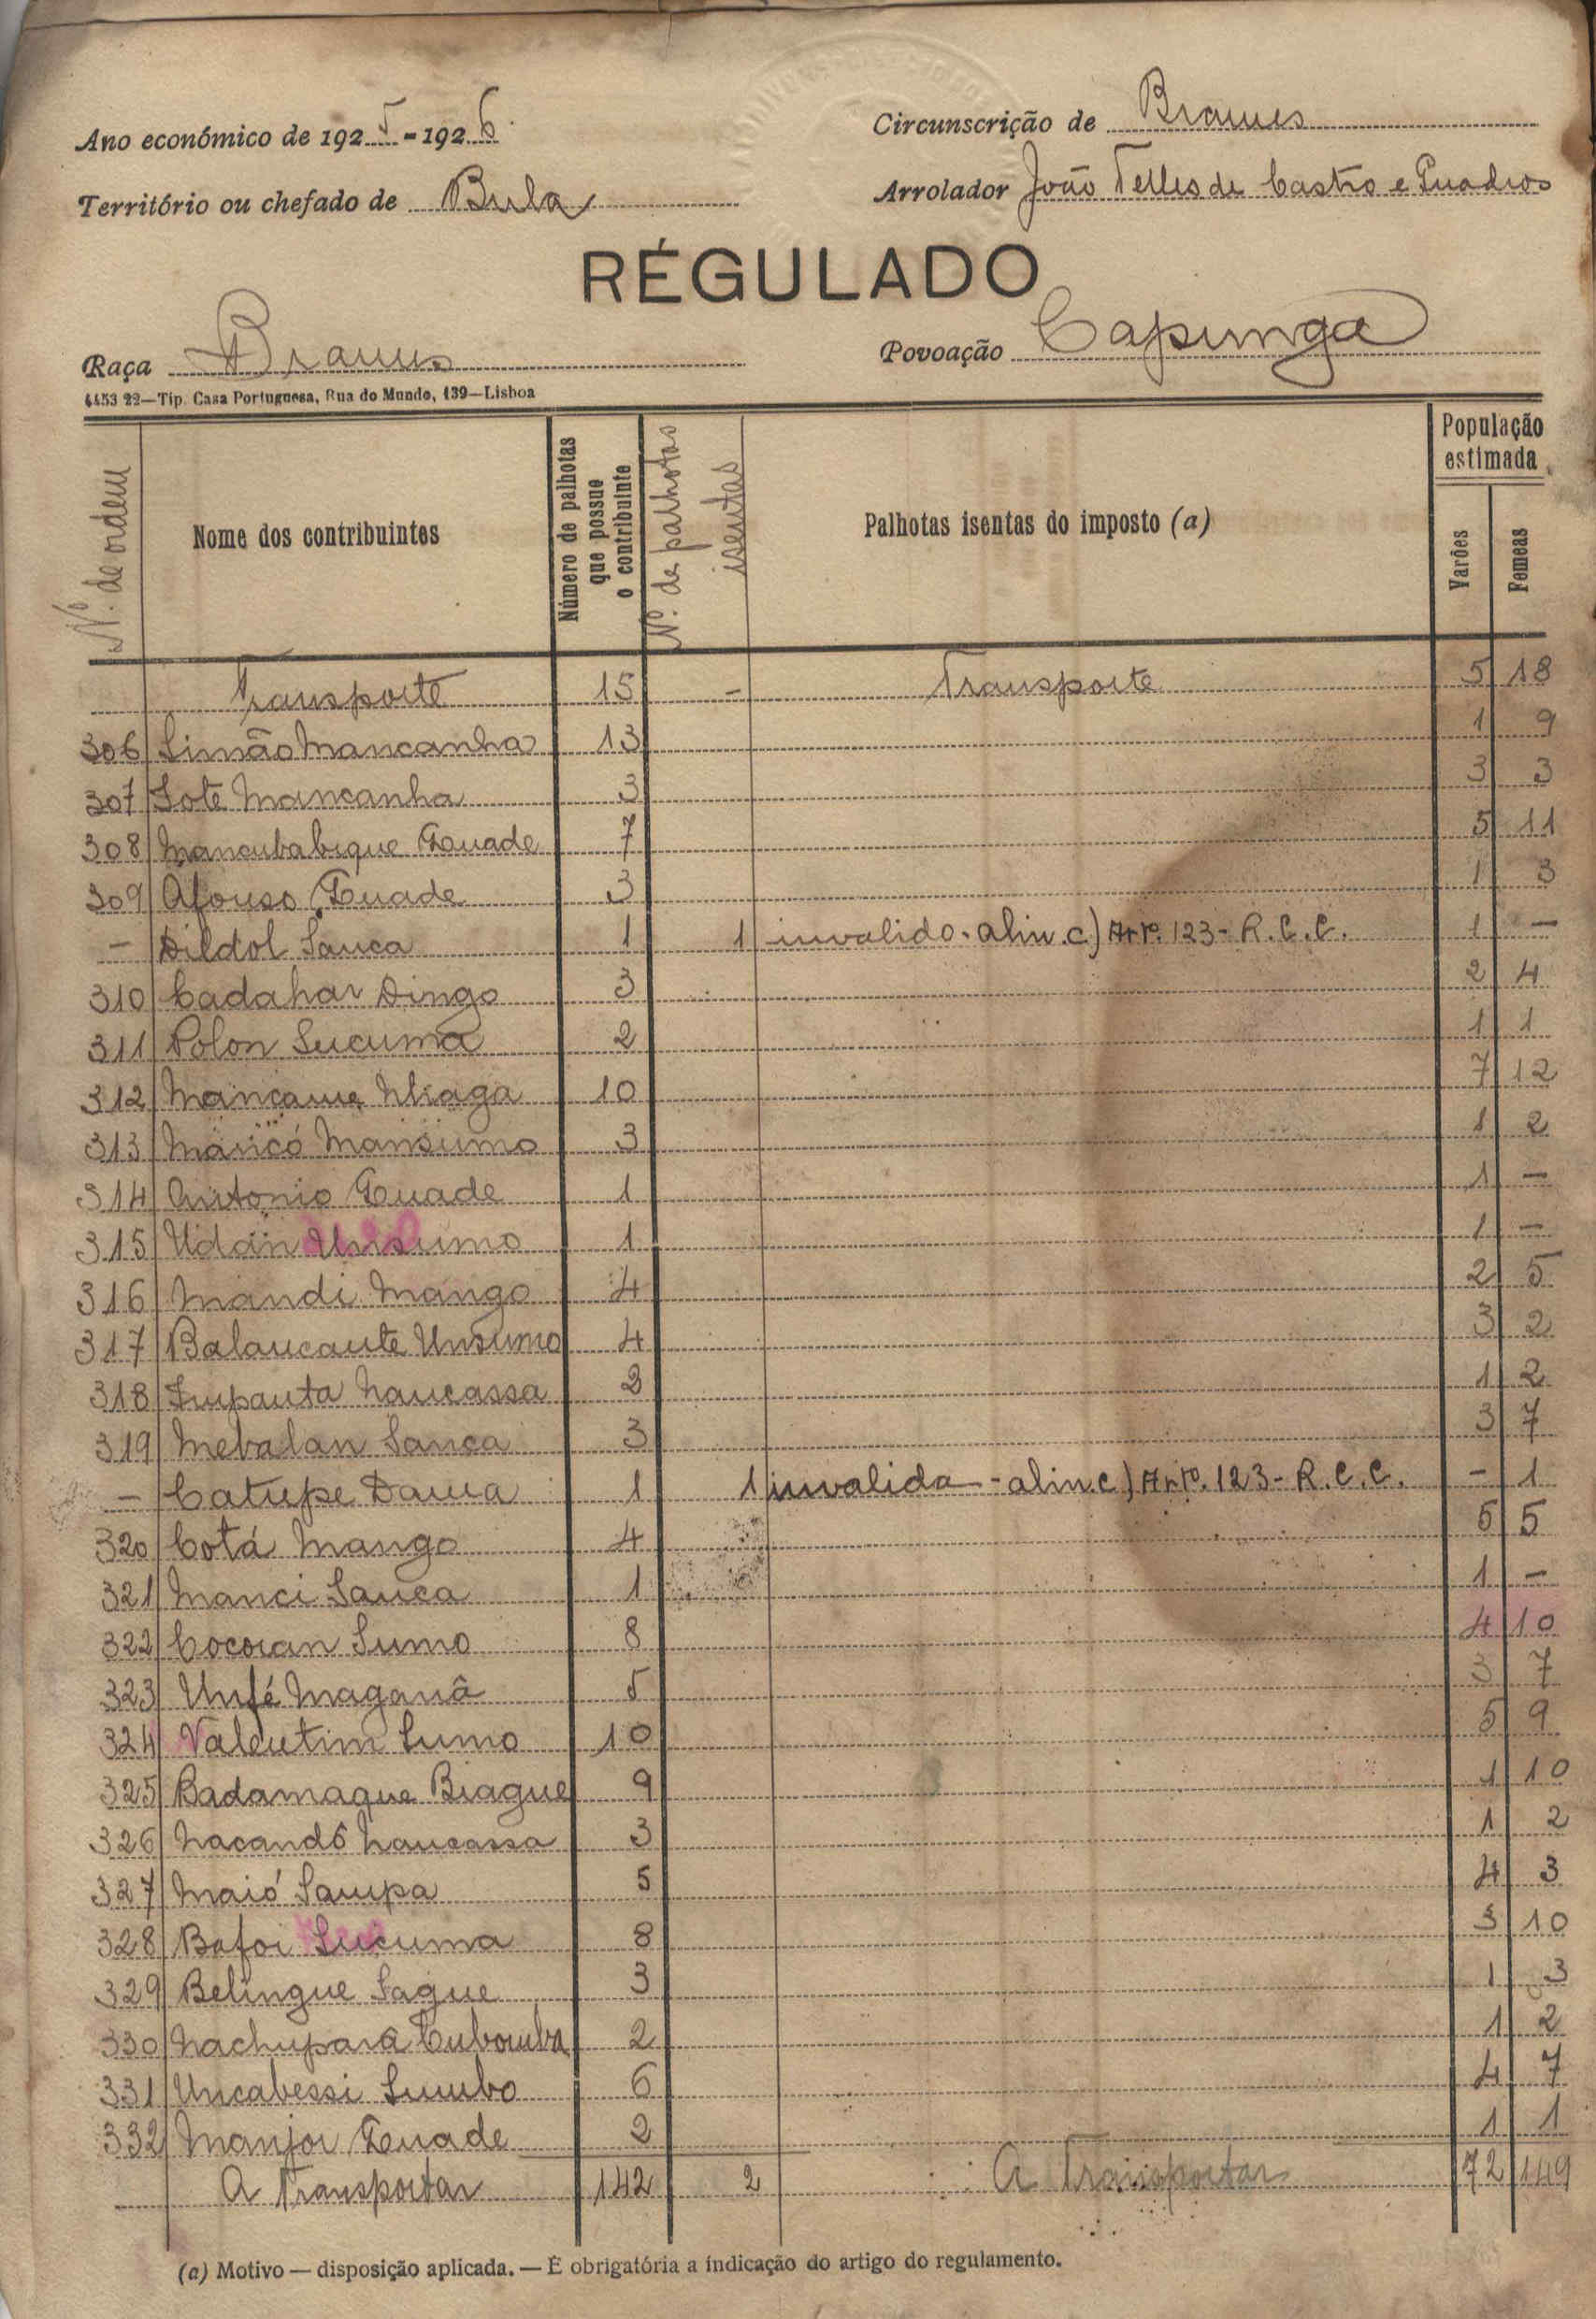 Ano económico de 1925-1926
Circunscrição de Brames
Território ou chefado de Bula
Arrolador João Telles de Castro e Quadros
RÉGULADO
Raça Brame
Povoação Capunga
4453 22—Tip. Casa Portuguesa, Rua do Mundo, 139—Lisboa
Nº. de ordem
Nome dos contribuintes
Número de palhotas que possue o contribuinte
Nº. de palhotas isentas
Palhotas isentas do imposto (a)
População estimada
Varões
Femeas
Transporte 15 - Transporte 5 18
306 Simão Mancanha 13 1 9
307 Sote Mancanha 3 3 3
308 Mancubabique Quade 7 5 11
309 Afonso Quade 3 1 3
- Dildol Sanca 1 1 invalido - alin. c) Artº. 123 - R.C.C. 1 -
310 Cadahar Dingo 3 2 4
311 Polon Sucuma 2 1 1
312 Mancame Nhaga 10 7 12
313 Mancó Mansumo 3 1 2
314 Antonio Quade 1 1 -
315 Udan Unsumo 1 1 -
316 Mandi Mango 4 2 5
317 Balancante Unsumo 4 3 2
318 Impanta Nancassa 2 1 2
319 Mebalan Sanca 3 3 7
- Catupe Dama 1 1 invalida - alin. c) Artº. 123 - R.C.C. - 1
320 Cotá Mango 4 5 5
321 Manci Sanca 1 1 -
322 Cocoran Sumo 8 4 10
323 Unfé Maganâ 5 3 7
324 Valentim Sumo 10 5 9
325 Badamaque Biague 9 1 10
326 Nacandô Nancassa 3 1 2
327 Maió Sampa 5 4 3
328 Bafoi Sucuma 8 3 10
329 Belingue Sague 3 1 3
330 Nachuparâ Cubomba 2 1 2
331 Uncabessi Sumbo 6 4 7
332 Manjoi Quade 2 1 1
A Transportar 142 2 A Transportar 72 149
(a) Motivo — disposição aplicada. — É obrigatória a indicação do artigo do regulamento.